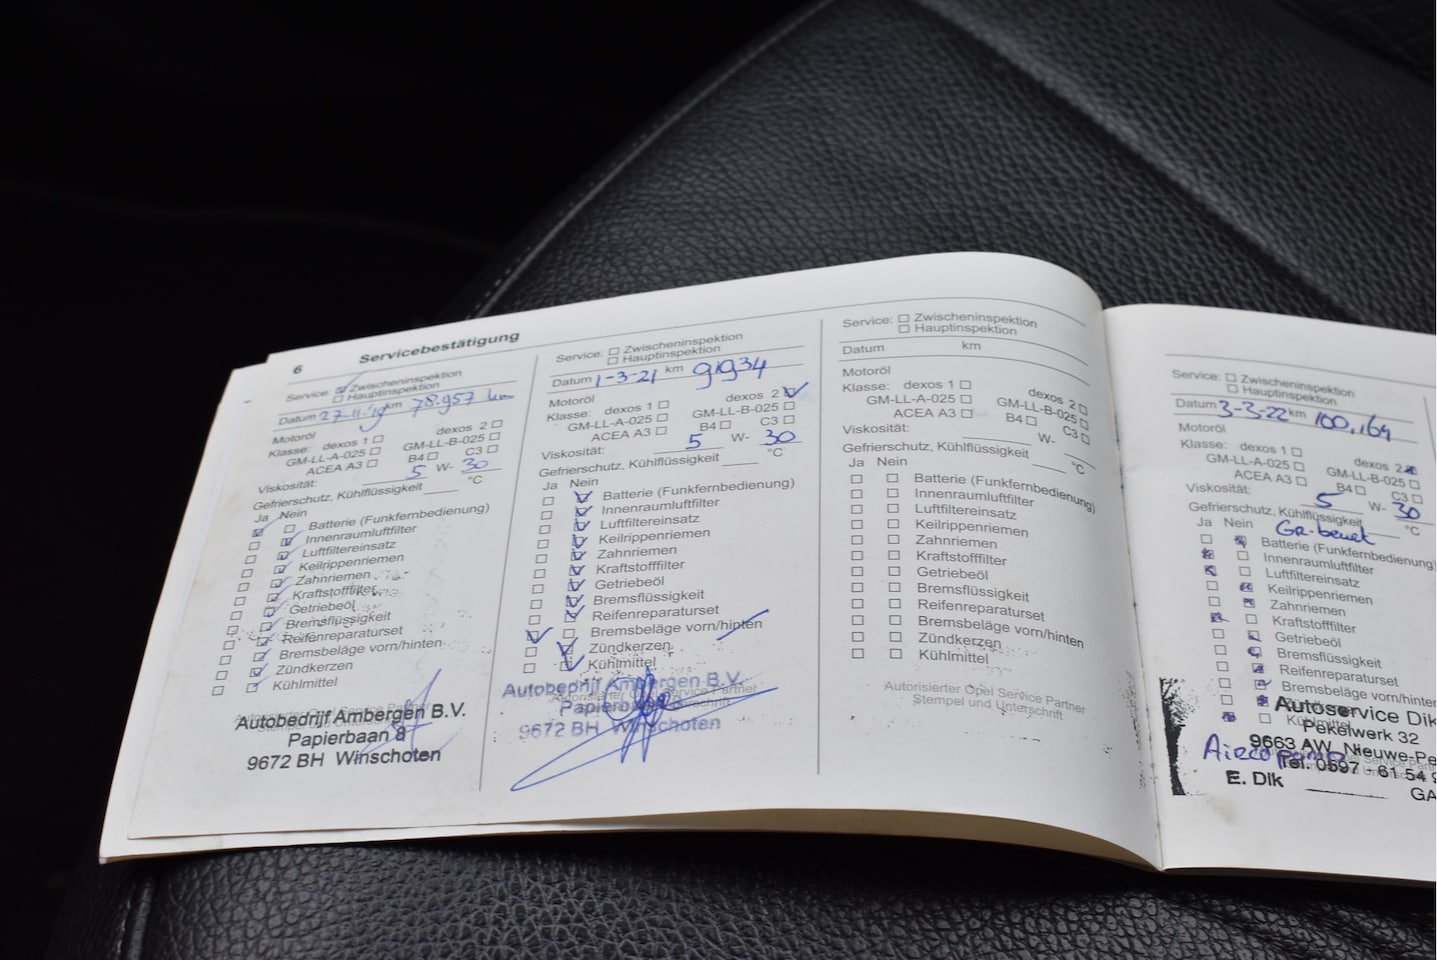 6
Servicebestätigung
Service: Zwischeninspektion
Hauptinspektion
Datum 27-11-19 km 78.957 km
Motoröl
Klasse: dexos 1 dexos 2
GM-LL-A-025 GM-LL-B-025
ACEA A3 B4 C3
Viskosität: 5 W- 30
Gefrierschutz, Kühlflüssigkeit °C
Ja Nein
Batterie (Funkfernbedienung)
Innenraumluftfilter
Luftfiltereinsatz
Keilrippenriemen
Zahnriemen
Kraftstofffilter
Getriebeöl
Bremsflüssigkeit
Reifenreparaturset
Bremsbeläge vorn/hinten
Zündkerzen
Kühlmittel
Autorisierter Opel Service Partner
Autobedrijf Ambergen B.V.
Papierbaan 8
9672 BH Winschoten
Service: Zwischeninspektion
Hauptinspektion
Datum 1-3-21 km 91934
Motoröl
Klasse: dexos 1 dexos 2
GM-LL-A-025 GM-LL-B-025
ACEA A3 B4 C3
Viskosität: 5 W- 30
Gefrierschutz, Kühlflüssigkeit °C
Ja Nein
Batterie (Funkfernbedienung)
Innenraumluftfilter
Luftfiltereinsatz
Keilrippenriemen
Zahnriemen
Kraftstofffilter
Getriebeöl
Bremsflüssigkeit
Reifenreparaturset
Bremsbeläge vorn/hinten
Zündkerzen
Kühlmittel
Autobedrijf Ambergen B.V.
Autorisierter Opel Service Partner
9672 BH Winschoten
Service: Zwischeninspektion
Hauptinspektion
Datum km
Motoröl
Klasse: dexos 1 dexos 2
GM-LL-A-025 GM-LL-B-025
ACEA A3 B4 C3
Viskosität: W-
Gefrierschutz, Kühlflüssigkeit °C
Ja Nein
Batterie (Funkfernbedienung)
Innenraumluftfilter
Luftfiltereinsatz
Keilrippenriemen
Zahnriemen
Kraftstofffilter
Getriebeöl
Bremsflüssigkeit
Reifenreparaturset
Bremsbeläge vorn/hinten
Zündkerzen
Kühlmittel
Autorisierter Opel Service Partner
Stempel und Unterschrift
Service: Zwischeninspektion
Hauptinspektion
Datum 3-3-22 km 100,164
Motoröl
Klasse: dexos 1 dexos 2
GM-LL-A-025 GM-LL-B-025
ACEA A3 B4 C3
Viskosität: 5 W- 30
Gefrierschutz, Kühlflüssigkeit °C
Ja Nein
Batterie (Funkfernbedienung)
Innenraumluftfilter
Luftfiltereinsatz
Keilrippenriemen
Zahnriemen
Kraftstofffilter
Getriebeöl
Bremsflüssigkeit
Reifenreparaturset
Bremsbeläge vorn/hinten
Kühlmittel
Autoservice Dik
Pekelwerk 32
9663 AW Nieuwe-Pe
Tel. 0597 - 61 54 9
E. Dik
GA